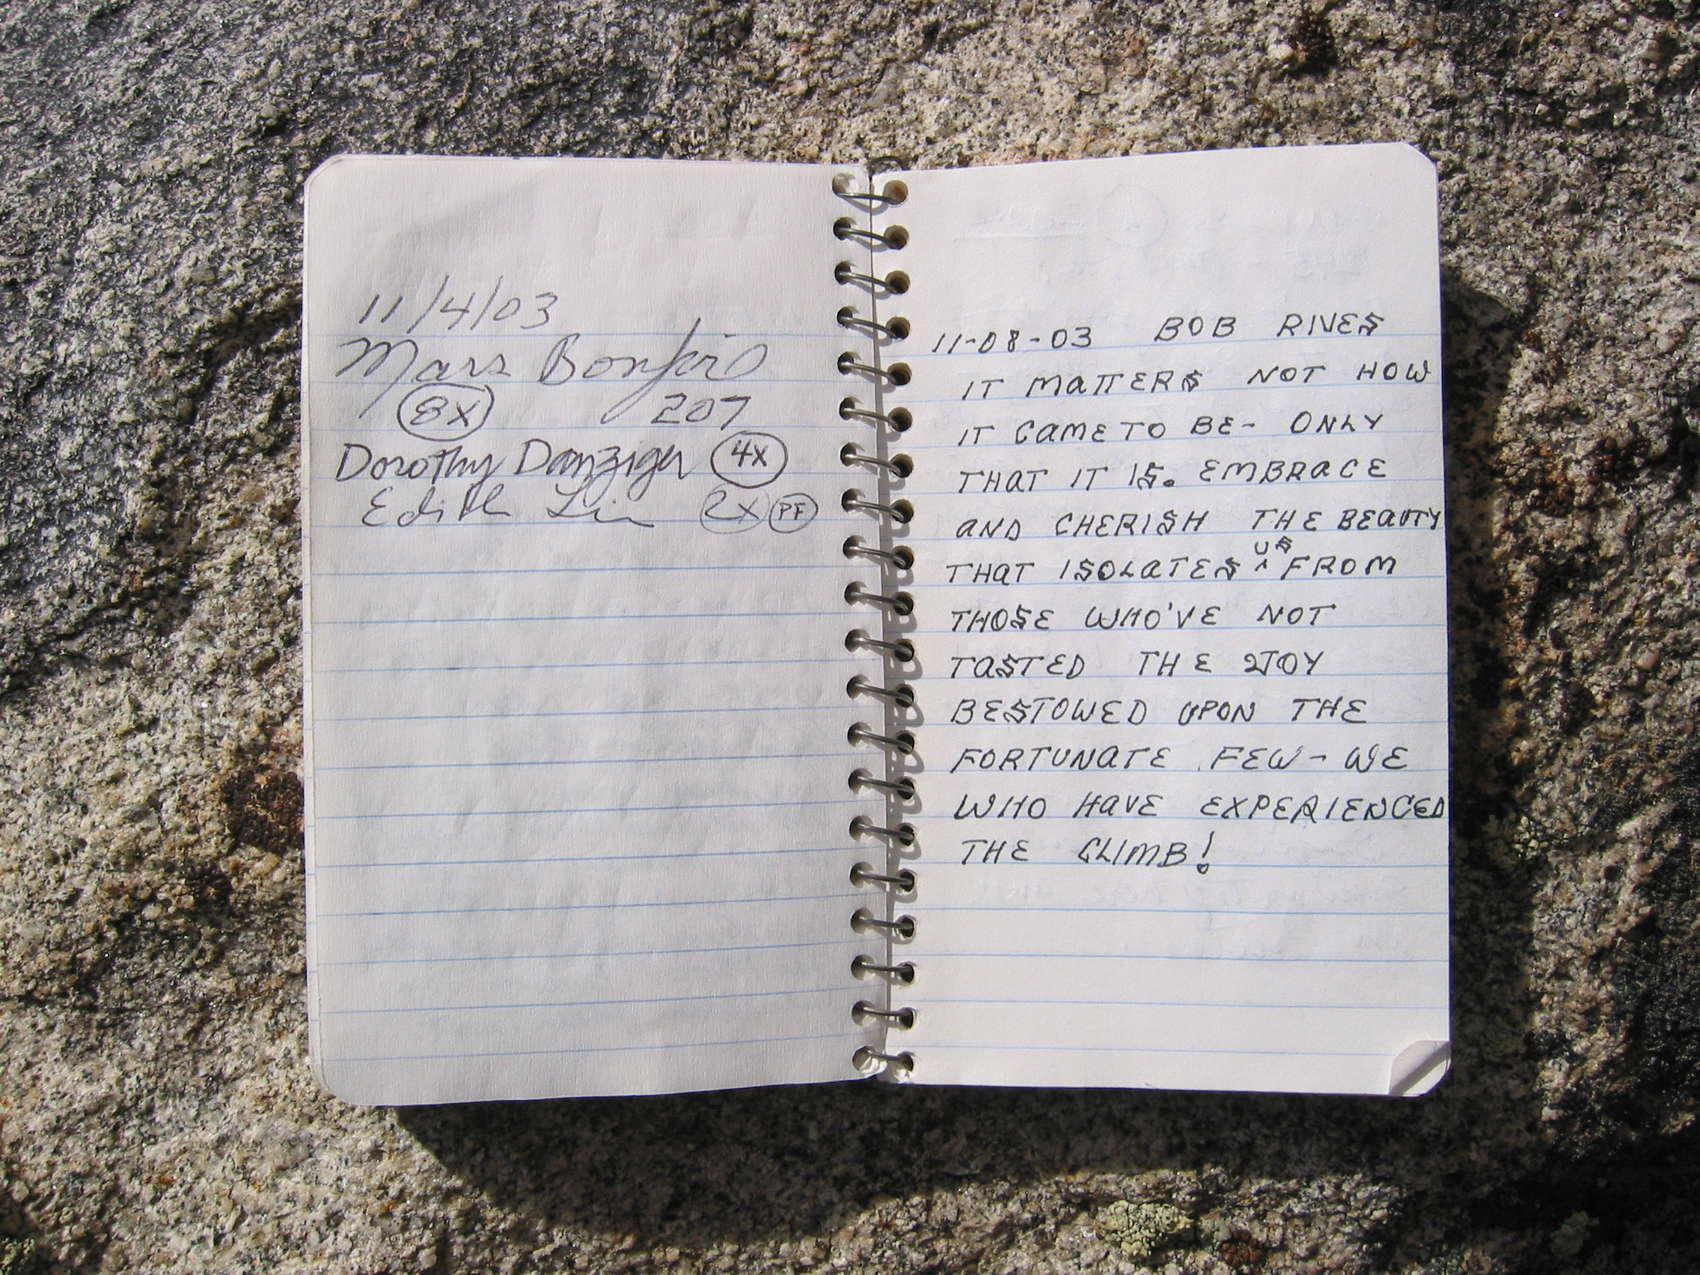 11/4/03
Mars Bonfire
8X 207
Dorothy Danziger 4X
Edith Liu 2X PF
11-08-03 BOB RIVES
IT MATTERS NOT HOW
IT CAME TO BE- ONLY
THAT IT IS. EMBRACE
AND CHERISH THE BEAUTY
THAT ISOLATES US FROM
THOSE WHO'VE NOT
TASTED THE JOY
BESTOWED UPON THE
FORTUNATE FEW- WE
WHO HAVE EXPERIENCED
THE CLIMB!